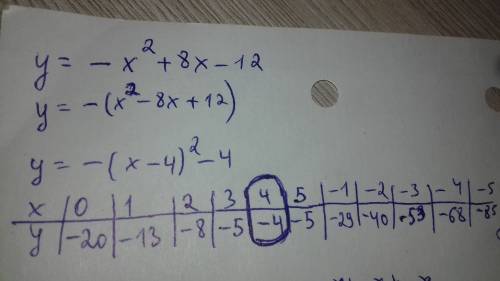 y = -x² + 8x - 12
y = -(x² - 8x + 12)
y = -(x - 4)² - 4
x 0 1 2 3 4 5 -1 -2 -3 -4 -5
y -20 -13 -8 -5 -4 -5 -29 -40 -53 -68 -85